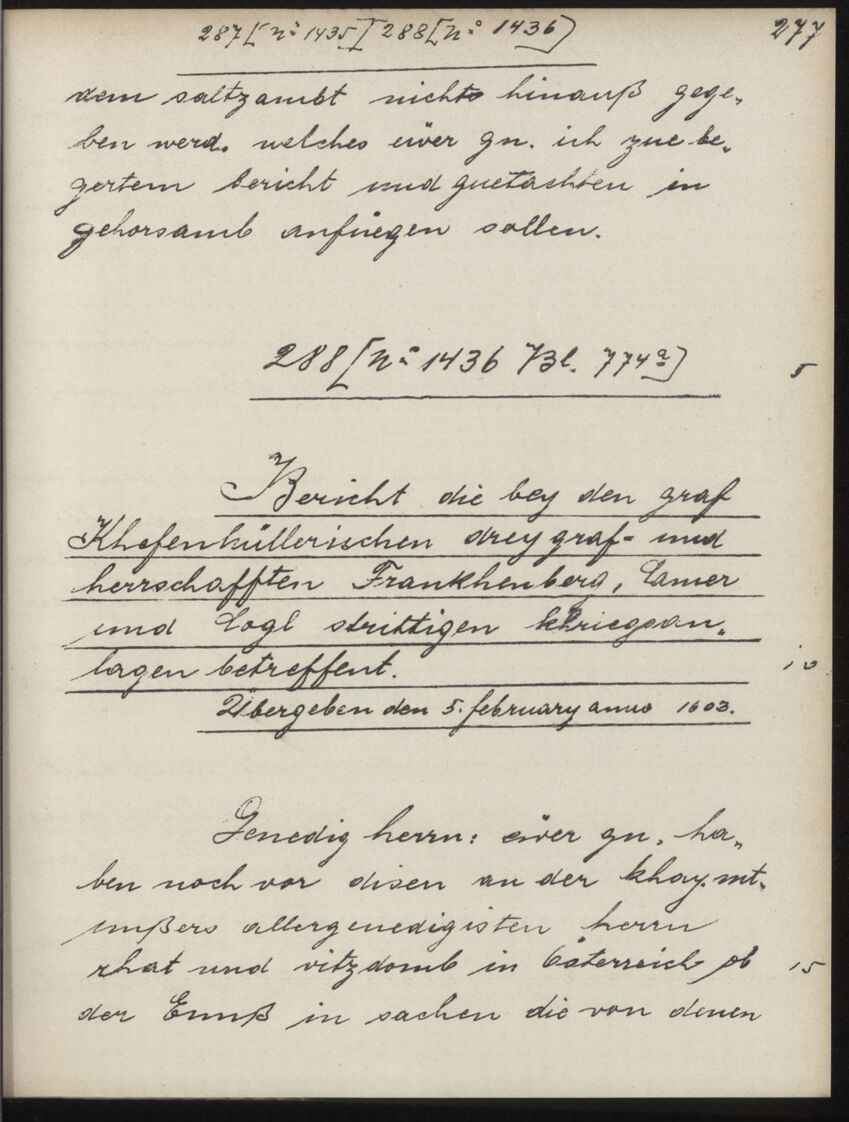 287 [No 1435] [288 [No 1436] 277
dem saltzambt nichts hinauß gege„
ben werd. welches eüer gn. ich zue be„
gertem bericht und guetachten in
gehorsamb anfüegen sollen.
288 [No 1436 Bl. 774a]
5
Bericht die bey den graf
Khefenhüllerischen drey graf- und
herrschafften Frankhenberg, Camer
und Cogl strittigen khriegsan„
lagen betreffent.
10
Übergeben den 5. february anno 1603.
Genedig herrn: eüer gn. ha„
ben noch vor disen an der khay. mt.
unßers allergenedigisten herrn
rhat und vitzdomb in Össterreich ob
15
der Ennß in sachen die von denen